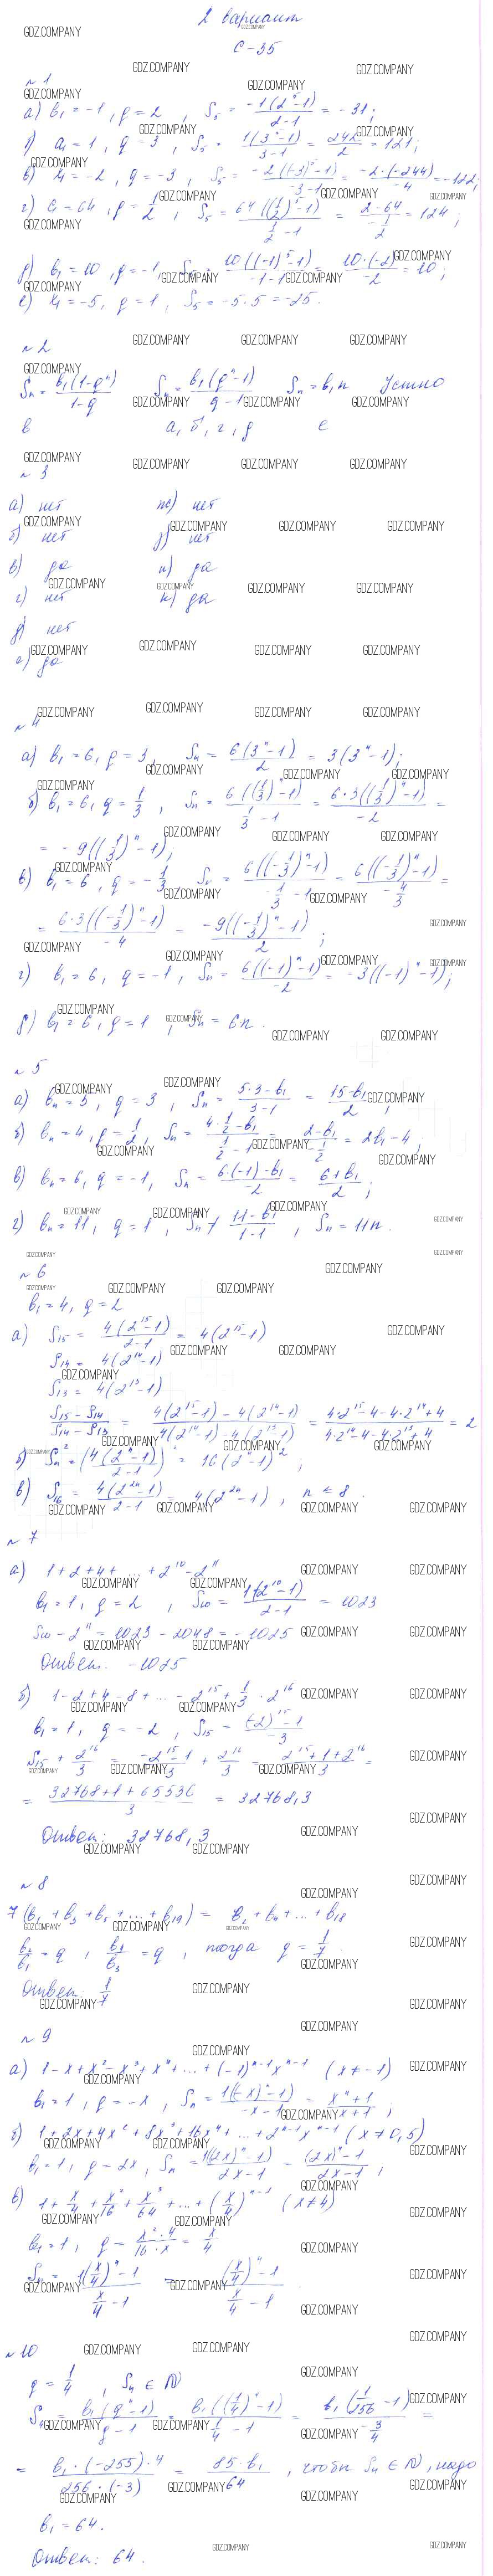 2 вариант
С-35
№1
а) b₁ = -1, q = 2, S₅ = -1(2⁵-1)/(2-1) = -31;
б) a₁ = 1, q = 3, S₅ = 1(3⁵-1)/(3-1) = 242/2 = 121;
в) x₁ = -2, q = -3, S₅ = -2((-3)⁵-1)/(-3-1) = -2·(-244)/(-4) = -122;
г) c₁ = 64, q = 1/2, S₅ = 64((1/2)⁵-1)/(1/2-1) = (2-64)/(-1/2) = 124;
д) b₁ = 10, q = -1, S₅ = 10((-1)⁵-1)/(-1-1) = 10·(-2)/(-2) = 10;
е) x₁ = -5, q = 1, S₅ = -5·5 = -25.
№2
Sₙ = b₁(1-qⁿ)/(1-q) Sₙ = b₁(qⁿ-1)/(q-1) Sₙ = b₁n Устно
в а, б, г, д е
№3
а) нет ж) нет
б) нет з) нет
в) да и) да
г) нет к) да
д) нет
е) да
№4
а) b₁ = 6, q = 3, Sₙ = 6(3ⁿ-1)/2 = 3(3ⁿ-1);
б) b₁ = 6, q = 1/3, Sₙ = 6((1/3)ⁿ-1)/(1/3-1) = 6·3((1/3)ⁿ-1)/(-2) =
= -9((1/3)ⁿ-1);
в) b₁ = 6, q = -1/3 Sₙ = 6((-1/3)ⁿ-1)/(-1/3-1) = 6((-1/3)ⁿ-1)/(-4/3) =
= 6·3((-1/3)ⁿ-1)/(-4) = -9((-1/3)ⁿ-1)/2;
г) b₁ = 6, q = -1, Sₙ = 6((-1)ⁿ-1)/(-2) = -3((-1)ⁿ-1);
д) b₁ = 6, q = 1, Sₙ = 6n.
№5
а) bₙ = 5, q = 3, Sₙ = (5·3-b₁)/(3-1) = (15-b₁)/2;
б) bₙ = 4, q = 1/2, Sₙ = (4·1/2-b₁)/(1/2-1) = (2-b₁)/(-1/2) = 2b₁-4;
в) bₙ = 6, q = -1, Sₙ = (6·(-1)-b₁)/(-2) = (6+b₁)/2;
г) bₙ = 11, q = 1, Sₙ ≠ (11-b₁)/(1-1), Sₙ = 11n.
№6
b₁ = 4, q = 2
а) S₁₅ = 4(2¹⁵-1)/(2-1) = 4(2¹⁵-1)
S₁₄ = 4(2¹⁴-1)
S₁₃ = 4(2¹³-1)
(S₁₅-S₁₄)/(S₁₄-S₁₃) = (4(2¹⁵-1)-4(2¹⁴-1))/(4(2¹⁴-1)-4(2¹³-1)) = (4·2¹⁵-4-4·2¹⁴+4)/(4·2¹⁴-4-4·2¹³+4) = 2
б) Sₙ² = (4(2ⁿ-1)/(2-1))² = 16(2ⁿ-1)²;
в) S₁₆ = 4(2²ⁿ-1)/(2-1) = 4(2²ⁿ-1), n = 8.
№7
а) 1+2+4+ ... +2¹⁰-2¹¹
b₁ = 1, q = 2, S₁₀ = 1(2¹⁰-1)/(2-1) = 1023
S₁₀-2¹¹ = 1023-2048 = -1025
Ответ: -1025
б) 1-2+4-8+ ... -2¹⁵+1/3·2¹⁶
b₁ = 1, q = -2, S₁₅ = ((-2)¹⁵-1)/(-3)
S₁₅+2¹⁶/3 = (-2¹⁵-1)/(-3)+2¹⁶/3 = (2¹⁵+1+2¹⁶)/3 =
= (32768+1+65536)/3 = 32768,3
Ответ: 32768,3
№8
7(b₁+b₃+b₅+...+b₁₉) = b₂+b₄+...+b₁₈
b₂/b₁ = q, b₁/b₃ = q, тогда q = 1/7.
Ответ: 1/7
№9
а) 1-x+x²-x³+x⁴+...+(-1)ⁿ⁻¹xⁿ⁻¹ (x≠-1)
b₁ = 1, q = -x, Sₙ = 1((-x)ⁿ-1)/(-x-1) = (xⁿ+1)/(x+1);
б) 1+2x+4x²+8x³+16x⁴+...+2ⁿ⁻¹xⁿ⁻¹ (x≠0,5)
b₁ = 1, q = 2x, Sₙ = 1((2x)ⁿ-1)/(2x-1) = ((2x)ⁿ-1)/(2x-1);
в) 1+x/4+x²/16+x³/64+...+(x/4)ⁿ⁻¹ (x≠4)
b₁ = 1, q = x²·4/(16·x) = x/4
Sₙ = 1((x/4)ⁿ-1)/(x/4-1) = ((x/4)ⁿ-1)/(x/4-1)
№10
q = 1/4, S₄ ∈ N
S₄ = b₁(qⁿ-1)/(q-1) = b₁((1/4)ⁿ-1)/(1/4-1) = b₁(1/256-1)/(-3/4) =
= b₁·(-255)·4/(256·(-3)) = 85·b₁/64, чтобы S₄ ∈ N, надо
b₁ = 64.
Ответ: 64.
GDZ.COMPANY